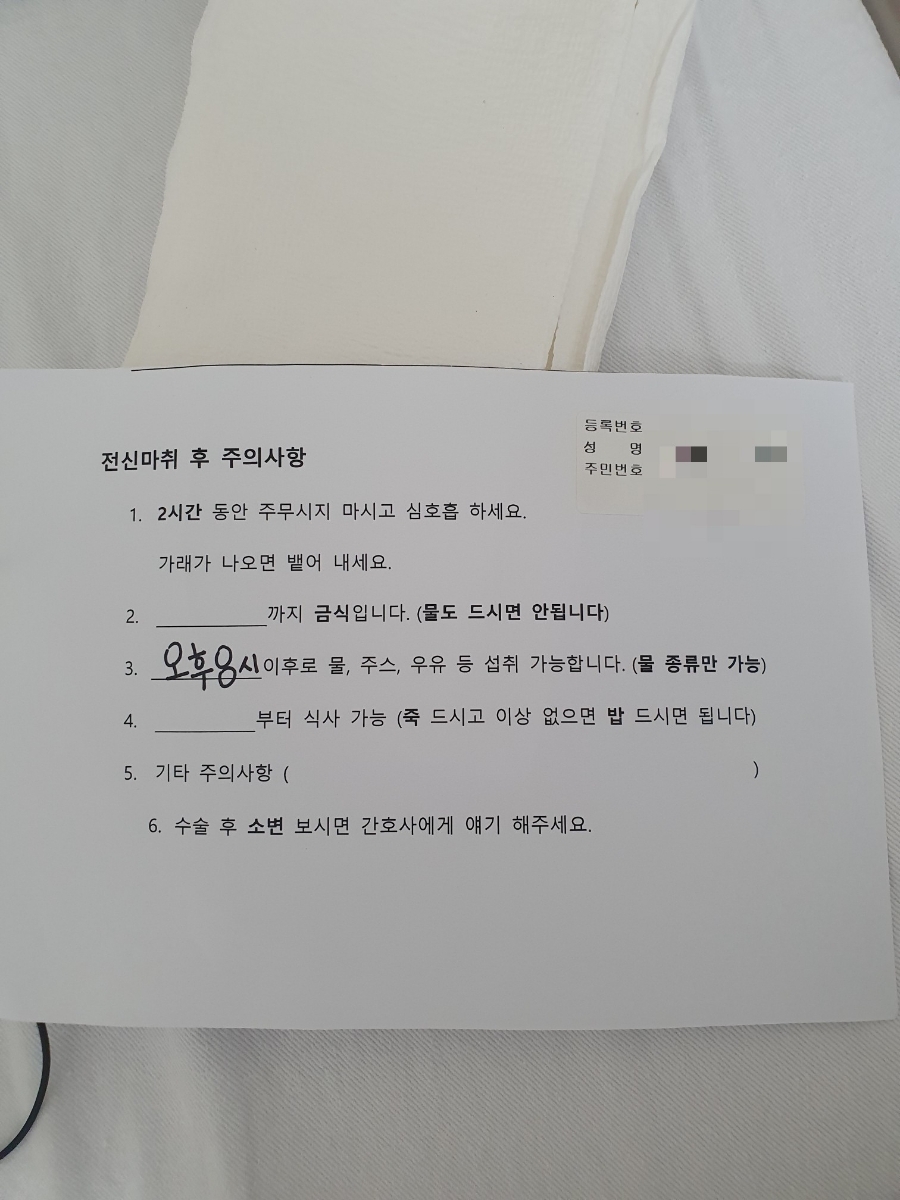 등록번호
성 명
주민번호
전신마취 후 주의사항
1. 2시간 동안 주무시지 마시고 심호흡 하세요.
가래가 나오면 뱉어 내세요.
2. __________까지 금식입니다. (물도 드시면 안됩니다)
3. 오후8시이후로 물, 주스, 우유 등 섭취 가능합니다. (물 종류만 가능)
4. _________부터 식사 가능 (죽 드시고 이상 없으면 밥 드시면 됩니다)
5. 기타 주의사항 ( )
6. 수술 후 소변 보시면 간호사에게 얘기 해주세요.